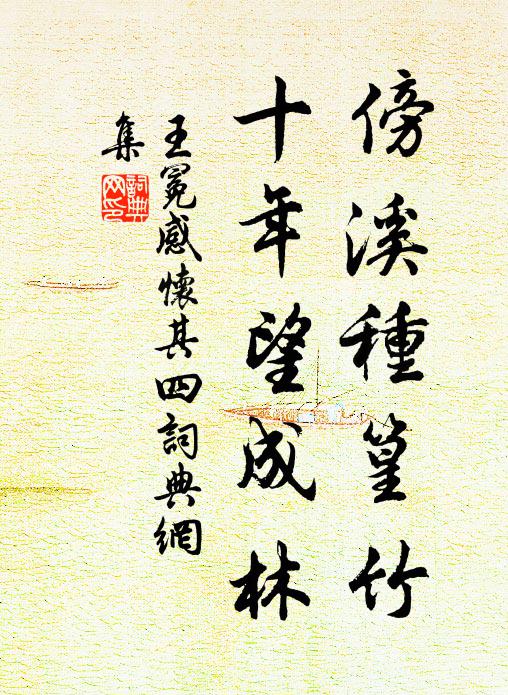 傍溪種篁竹
十年望成林
王冕感懷其四詞典網
集
詞典
网印